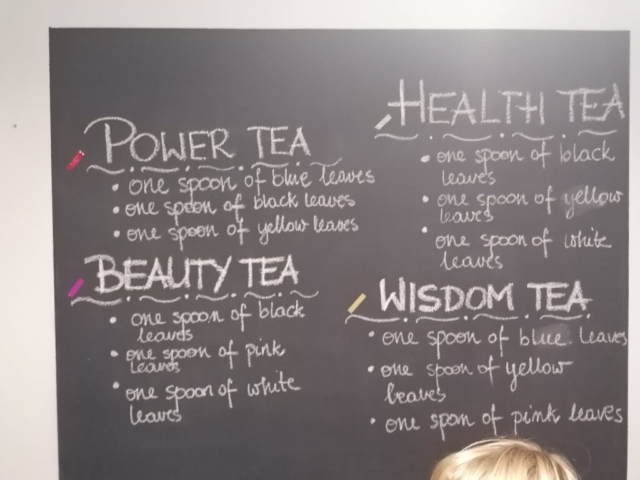 POWER TEA
• one spoon of blue leaves
• one spoon of black leaves
• one spoon of yellow leaves
BEAUTY TEA
• one spoon of black
leaves
• one spoon of pink
leaves
• one spoon of white
leaves
HEALTH TEA
• one spoon of black
leaves
• one spoon of yellow
leaves
• one spoon of white
leaves
WISDOM TEA
• one spoon of blue leaves
• one spoon of yellow
leaves
• one spon of pink leaves